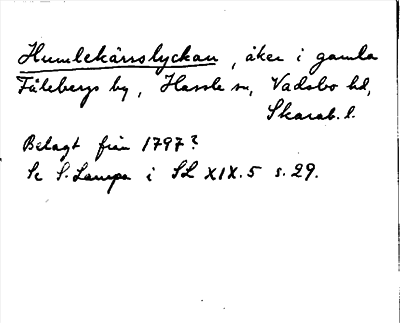 Humlekärrslyckan, åker i gamla
Fälebergs by, Hassle sn, Vadsbo hd,
Skarab. l.
Belagt från 1797?
Se S. Lampa i SL XIX.5 s. 29.